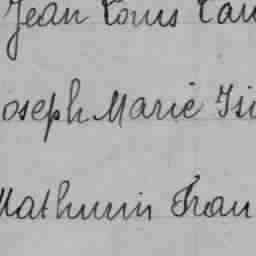 Jean Louis
Joseph Marie Isi
Mathurin Fran